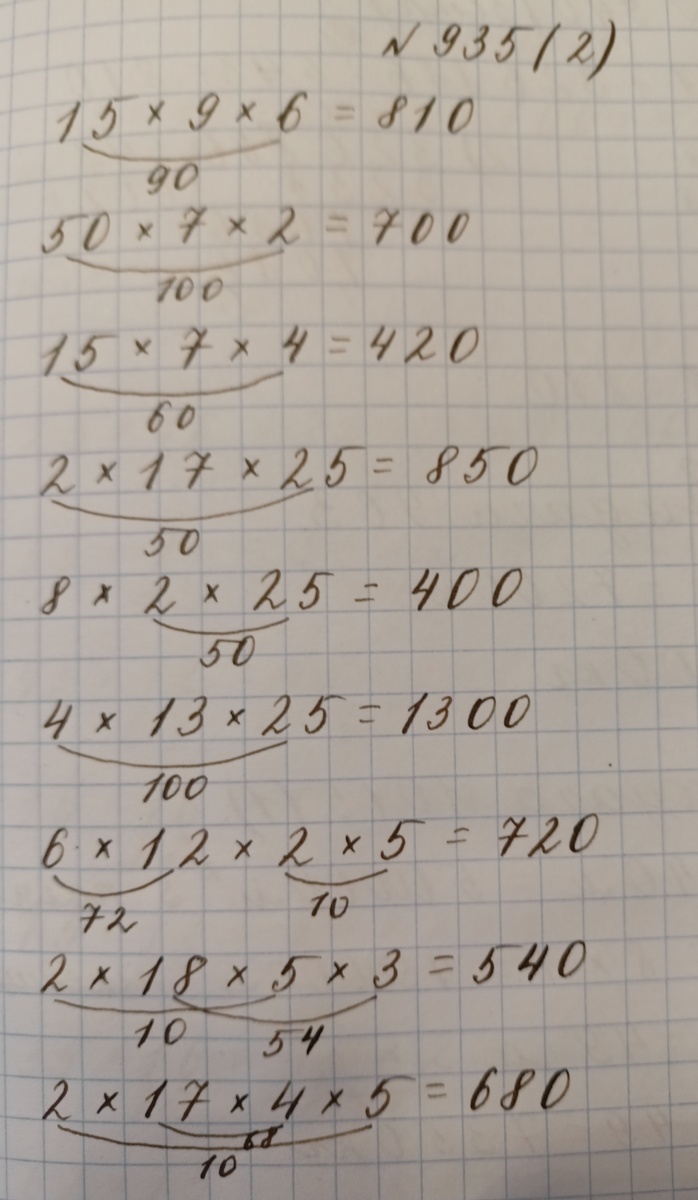 № 935 (2)
15 × 9 × 6 = 810
90
50 × 7 × 2 = 700
100
15 × 7 × 4 = 420
60
2 × 17 × 25 = 850
50
8 × 2 × 25 = 400
50
4 × 13 × 25 = 1300
100
6 × 12 × 2 × 5 = 720
72 10
2 × 18 × 5 × 3 = 540
10 54
2 × 17 × 4 × 5 = 680
68
10